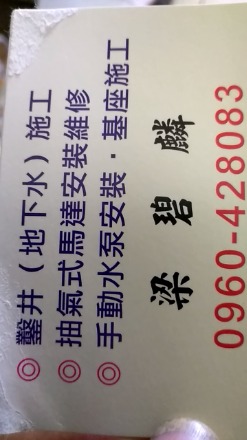 ◎鑿井（地下水）施工
◎抽氣式馬達安裝維修
◎手動水泵安裝．基座施工
梁碧麟
0960-428083